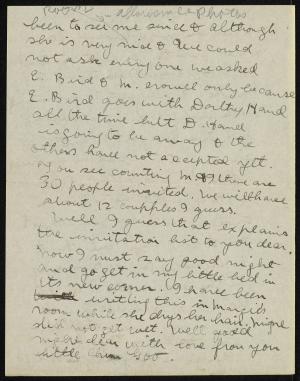 been to see me since & although
she is very nice & we could
not ask every one we asked
E. Bird & M. Crowell only because
E. Bird goes with Dorthy Hand
all the time but D. Hand
is going to be away & the
others have not accepted yet.
you see counting M & I there are
30 people invited. We will have
about 12 coupples I guess.
Well I guess that explains
the invitation list to you dear.
Now I must say good night
and go get in my little bed in
its new corner. I have been
writing this in Margits
room while she drys her hair.
did not get wet. Well good
night dear with love from your
little